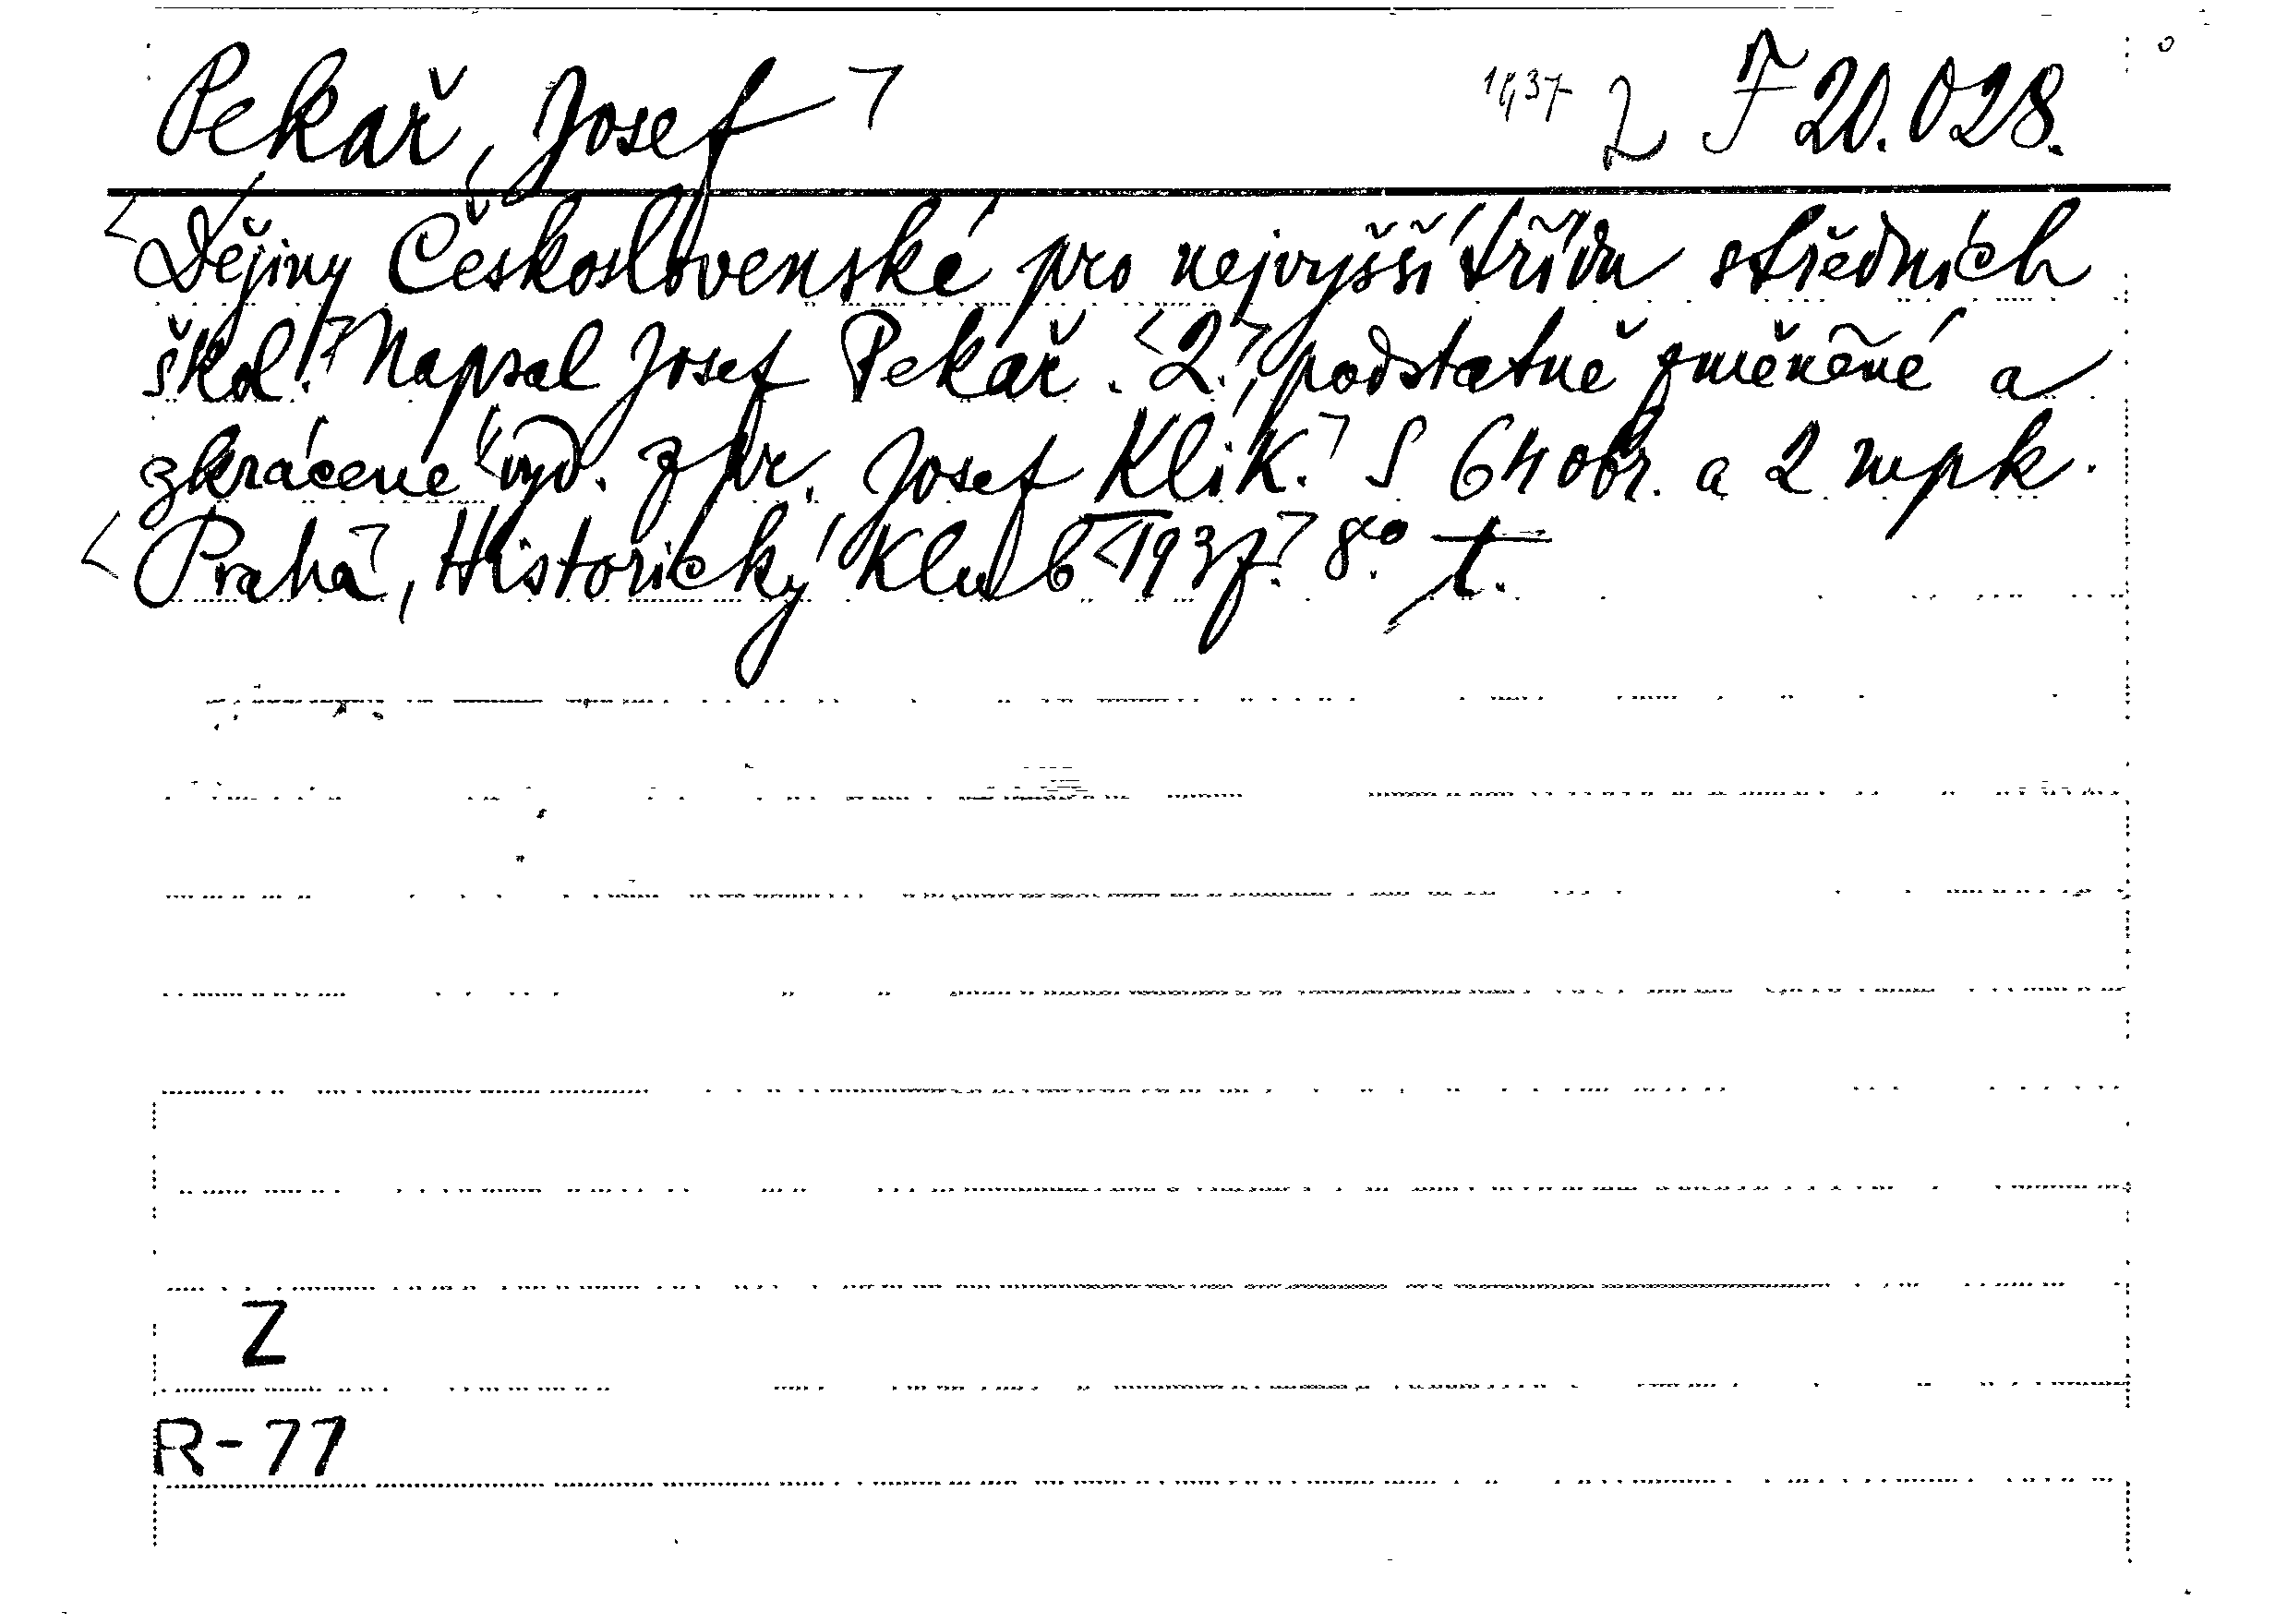 Pekař, Josef 1937 2 F 20.028.
Dějiny Československé pro nejvyšší třídu středních
škol. Napsal Josef Pekař. 2., podstatně změněné a
zkrácené vyd. zpr. Josef Klik. S 64 obr. a 2 mpk.
Praha, Historický Klub 1937. 8° t.
Z
R-77